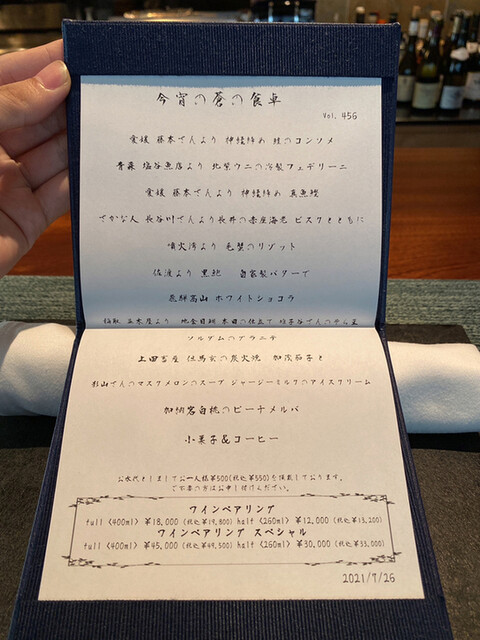 今宵の蒼の食卓
Vol. 456
愛媛 藤本さんより 神経締め 鮭のコンソメ
青森 塩谷魚店より 北紫ウニの冷製フェデリーニ
愛媛 藤本さんより 神経締め 真魚鰹
さかな人 長谷川さんより長井の赤座海老 ビスクとともに
噴火湾より 毛蟹のリゾット
佐渡より 黒鮑 自家製バターで
飛騨高山 ホワイトショコラ
ソルダムのグラニテ
上田畜産 但馬玄の炭火焼 加茂茄子と
杉山さんのマスクメロンのスープ ジャージーミルクのアイスクリーム
加納岩白桃のピーチメルバ
小菓子&コーヒー
お水代としましてお一人様¥500(税込¥550)を頂戴しております。
ご不要の方はお申し付けください。
ワインペアリング
full (400ml) ¥18,000 (税込¥19,800) half (260ml) ¥12,000 (税込¥13,200)
ワインペアリング スペシャル
full (400ml) ¥45,000 (税込¥49,500) half (260ml) ¥30,000 (税込¥33,000)
2021/7/26